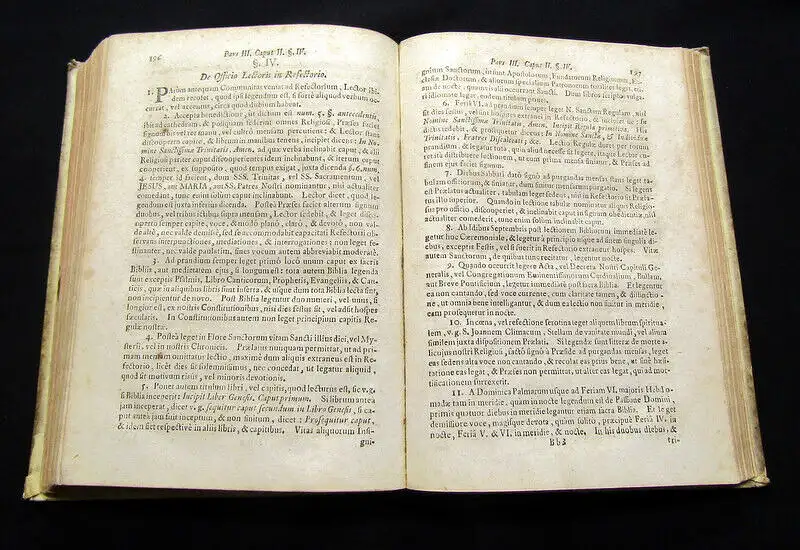 196
Pars III. Caput II. §. IV.
§. IV.
De Officio Lectoris in Refectorio.
1. PArum antequam Communitas veniat ad Refectorium, Lector ibidem
recolet, quod ipsi legendum est, si fortè aliquod verbum
curat, vel accentus, circa quod dubium habeat.
2. Accepta benedictione, ut dictum est num. 5. §. antecedentis,
ibit ad cathedram, & postquam sederint omnes Religiosi, Præses faciet
signum vel manu, vel cultro mensam percutiens; & Lector stans
discooperto capite, & librum in manibus tenens, incipiet dicens: In Nomine
Sanctissimæ Trinitatis. Amen, ad quæ verba inclinabit caput, & alii
Religiosi pariter caput discooperientes idem inclinabunt, & iterum caput
cooperient, ex supposito, quod tempus exigat, juxta dicenda §. 6. num.
4. semper id fiet, dum SSS. Trinitas, vel SS. Sacramentum, vel
JESUS, aut MARIA, aut SS. Patres Nostri nominantur, nisi actualiter
comedant, tunc enim solum caput inclinabunt. Lector dicet, quod legendum
est juxta inferiùs dicenda. Posteà Præses faciet alterum signum
duobus, vel tribus ictibus supra mensam, Lector sedebit, & leget discooperto
semper capite, voce, & modo planò, clarò, & devotò, non valde
altè, nec valde demissè, sed se accommodabit capacitati Refectorii observans
interpunctiones, mediationes, & interrogationes: non leget festinanter,
nec valdè paulatim, fines vocum autem abbreviabit moderatè.
3. Ad prandium semper leget primò locò unum caput ex sacris
Bibliis, aut medietatem ejus, si longum est: tota autem Biblia legenda
sunt exceptis Psalmis, Libro Canticorum, Prophetis, Evangeliis, & Canticis,
quæ in aliquibus libris sunt inserta, & usque dum tota Biblia lecta sint,
non incipientur de novo. Post Biblia legentur duo numeri, vel unus, si
longior est, ex nostris Constitutionibus, nisi dies festus sit, vel adsit hospes
sæcularis. In Constitutionibus autem non leget principium capitis Regulæ
nostræ.
4. Posteà leget in Flore Sanctorum vitam Sancti illius diei, vel Mysterii,
vel in nostris Chronicis. Prælatus nunquam permittat, ut ad primam
mensam omittatur lectio, maximè dum aliquis extraneus est in Refectorio,
licèt dies sit solemnissimus, nec concedat, ut legatur aliquid,
quod sit motivum risûs, vel minoris devotionis.
5. Ponet autem titulum libri, vel capitis, quod lecturus est, sic v. g.
si Biblia inceperit: Incipit Liber Genesis, Caput primum. Si librum antea
jam inceperat, dicet v. g. sequitur caput secundum in Libro Genesis, si caput
antea jam fuit inceptum, & non finitum, dicet: Prosequitur caput,
& idem fiet respectivè in aliis libris, & capitibus. Vitas aliquorum Insi-
gni-
Pars III. Caput II. §. IV.
197
gnium Sanctorum, ut sunt Apostolorum, Fundatorum Religionum, Ecclesiæ
Doctorum, & aliorum specialium Patronorum totaliter leget, etiam
de nocte, quamvis alii occurrant Sancti. Dum libros incipit vulgari
idiomate leget, eodem titulum ponet.
6. Feriâ VI. ad prandium semper leget N. Sanctam Regulam, nisi
sit dies festus, vel sint hospites extranei in Refectorio, & incipiet ita: In
Nomine Sanctissimæ Trinitatis, Amen, Incipit Regula primitiva. His
dictis sedebit, & prosequetur dicens: In Nomine Sanctæ, & Individuæ
Trinitatis, Fratres Discalceati, &c. Lectio Regulæ duret per totum
prandium, & legatur tota, quin aliud necesse sit legere, itaque Lector curet
ita distribuere lectionem, ut cum prima mensa finiatur, & Præses ad
finem ejus faciet signum.
7. Diebus Sabbati datò signò ad purgandas mensas stans leget tabulam
officiorum, & finiatur, dum finitur mensarum purgatio. Si legens
est Prælatus actualiter, tabulam leget sedens, nisi in Refectorio sit Prælatus
illo superior. Quando in lectione tabulæ nominatur aliquis Religiosus
pro officio, discooperiet, & inclinabit caput in signum obedientiæ, nisi
actualiter comederit, tunc enim solùm inclinabit caput.
8. Ab Idibus Septembris post lectionem Bibliorum immediatè legetur
hoc Cæremoniale, & legetur à principio usque ad finem singulis diebus,
exceptis Festis, vel si fuerit in Refectorio extraneus hospes. Vitæ
autem Sanctorum, de quibus tunc recitatur, legentur nocte.
9. Quando occurrit legere Acta, vel Decreta Nostri Capituli Generalis,
vel Congregationum Eminentissimorum Cardinalium, Bullam,
aut Breve Pontificium, legetur immediatè post sacra Biblia. Et legentur
ea non cantando, sed voce currente, cum claritate tamen, & distinctione,
ut omnia bene intelligantur, & dum ea lectio non finitur in meridie,
eam prosequetur in nocte.
10. In cœna, vel refectione serotina leget aliquem librum spiritualem,
v. g. S. Joannem Climacum, Stellam de vanitate mundi, vel alium
similem juxta dispositionem Prælati. Si legendæ sunt litteræ de morte alicujus
nostri Religiosi, factò signò à Præside ad purgandas mensas, leget
eas sedens alta voce non cantando, & recolat eas prius bene, ut sine hæsitatione
eas legat, & Præses non permittat, ut alter eas legat, qui ad mortificationem
surrexerit.
11. A Dominica Palmarum usque ad Feriam VI. majoris Hebdomadæ
tam in meridie, quàm in nocte legendum est de Passione Domini,
primis quatuor diebus in meridie legantur etiam sacra Biblia. Et leget
demissiore voce, magisque devota, quàm solito, præcipuè Feriâ IV. in
nocte, Feriâ V. & VI. in meridie, & nocte. In his duobus diebus, &
Bb3
tri-